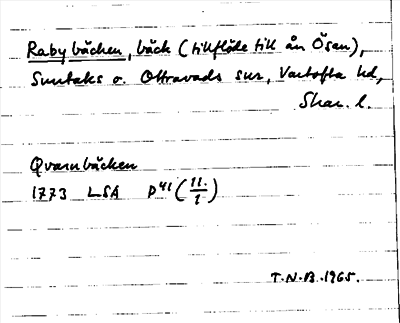 Rabybäcken, bäck (tillflöde till ån Ösan),
Suntaks o. Ottravads snr, Vartofta hd,
Skar. l.
Qvarnbäcken
1773 LSA P41 (11./1)
T.N.B. 1965.